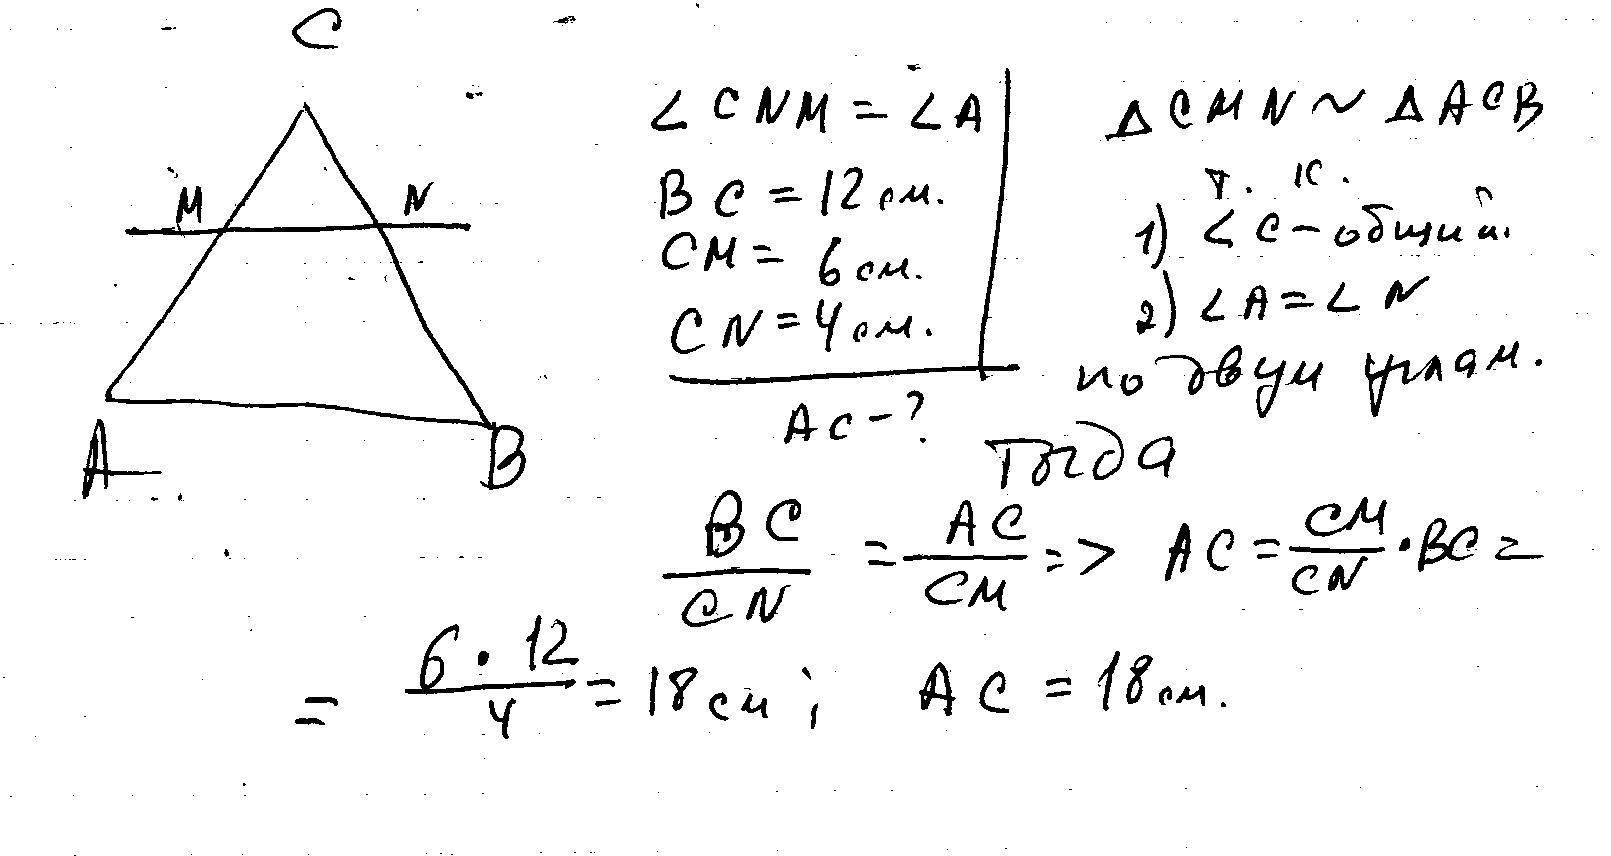 C
M N
A B
∠ CNM = ∠ A
BC = 12 см.
CM = 6 см.
CN = 4 см.
AC - ?
Δ CMN ~ Δ ACB
т. к.
1) ∠ C - общий.
2) ∠ A = ∠ N
по двум углам.
Тогда
BC/CN = AC/CM => AC = CM/CN · BC =
= 6 · 12/4 = 18 см; AC = 18 см.